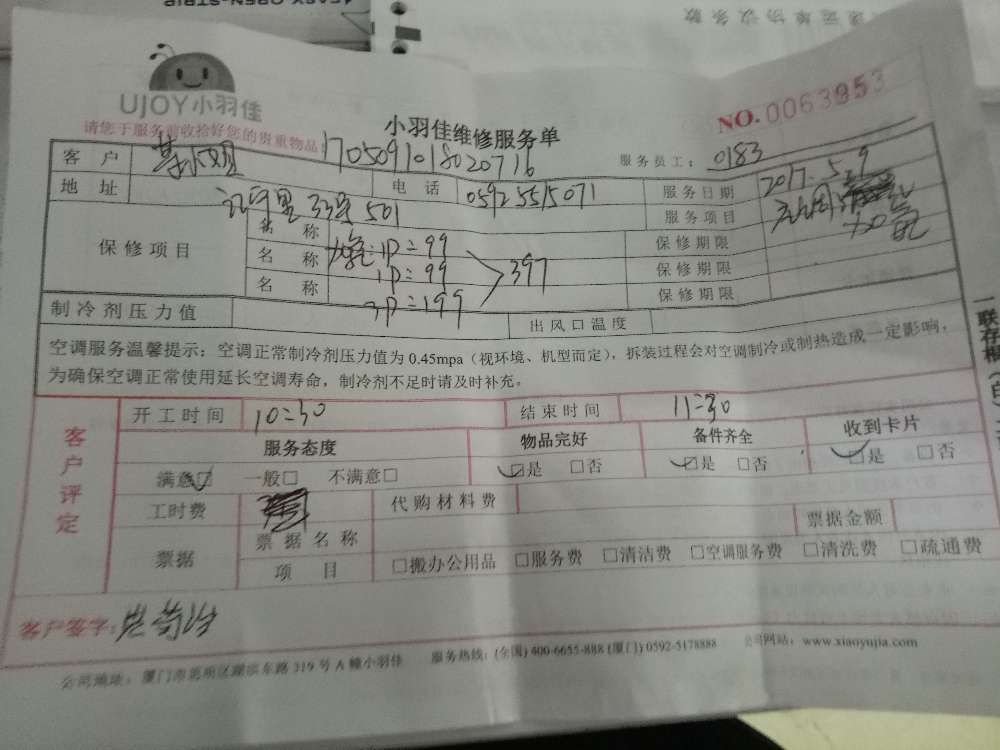 EASY OPEN-STRIP
递运单协议条款
UJOY小羽佳
请您于服务前收拾好您的贵重物品!
小羽佳维修服务单
NO.0063953
1705091018020716
服务员工: 0183
客户
地址
电话 0592 5515071
服务日期 2017.5.9
服务项目
33号 501
保修项目
名称 1P=99
名称 1P=99
名称 3P=199
397
保修期限
保修期限
保修期限
制冷剂压力值
出风口温度
空调服务温馨提示:空调正常制冷剂压力值为0.45mpa(视环境、机型而定),拆装过程会对空调制冷或制热造成一定影响,
为确保空调正常使用延长空调寿命,制冷剂不足时请及时补充。
客户评定
开工时间 10:30 结束时间 11:30
服务态度 物品完好 备件齐全 收到卡片
满意□ 一般□ 不满意□ □是 □否 □是 □否 □是 □否
工时费 代购材料费
票据 票据名称 票据金额
项目 □搬办公用品 □服务费 □清洁费 □空调服务费 □清洗费 □疏通费
客户签字:
公司地址:厦门市思明区湖滨东路319号A幢小羽佳 服务热线:(全国)400-6655-888(厦门)0592-5178888 公司网站:www.xiaoyujia.com
一联存根(白)